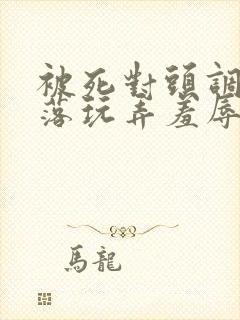 被死對頭調
落玩弄羞辱
馬龍